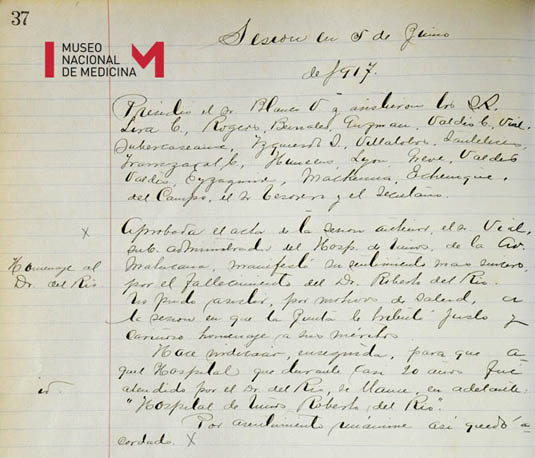 37
MUSEO
NACIONAL
DE MEDICINA
Sesion en 5 de Junio
de 1917.
Presidio el Sr. Blanco V y asistieron los SS.
Lira C, Rogers, Bernales, Guzman, Valdes C, Vial,
Subercaseaux, Yzquierdo S, Villalobos,
Irarrazaval C, Huneeus, Lyon, Valdes
Valdes, Eyzaguirre, Mackenna, Echenique,
del Campo, el Sr Tesorero y el Secretario.
x
Homenaje al
Dr. del Rio
Aprobada el acta de la sesion anterior, el Sr. Vial,
sub. administrador del Hosp. de Niños, de la Av.
Matucana, manifestó su sentimiento mas sincero
por el fallecimiento del Dr. Roberto del Rio.
No pudo asistir, por motivos de salud, a
la sesion en que la Junta le tributó justo y
cariñoso homenaje a sus méritos.
Hace indicacion, enseguida, para que a-
quel Hospital que durante casi 20 años fué
id.
atendido por el Dr. del Rio, se llame, en adelante:
"Hospital de Niños, Roberto del Rio".
Por asentimiento unanime así quedó a-
cordado. x